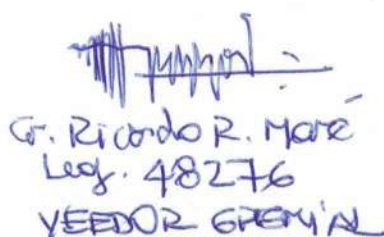 Cr. Ricardo R. Moré
Leg. 48276
VEEDOR GREMIAL